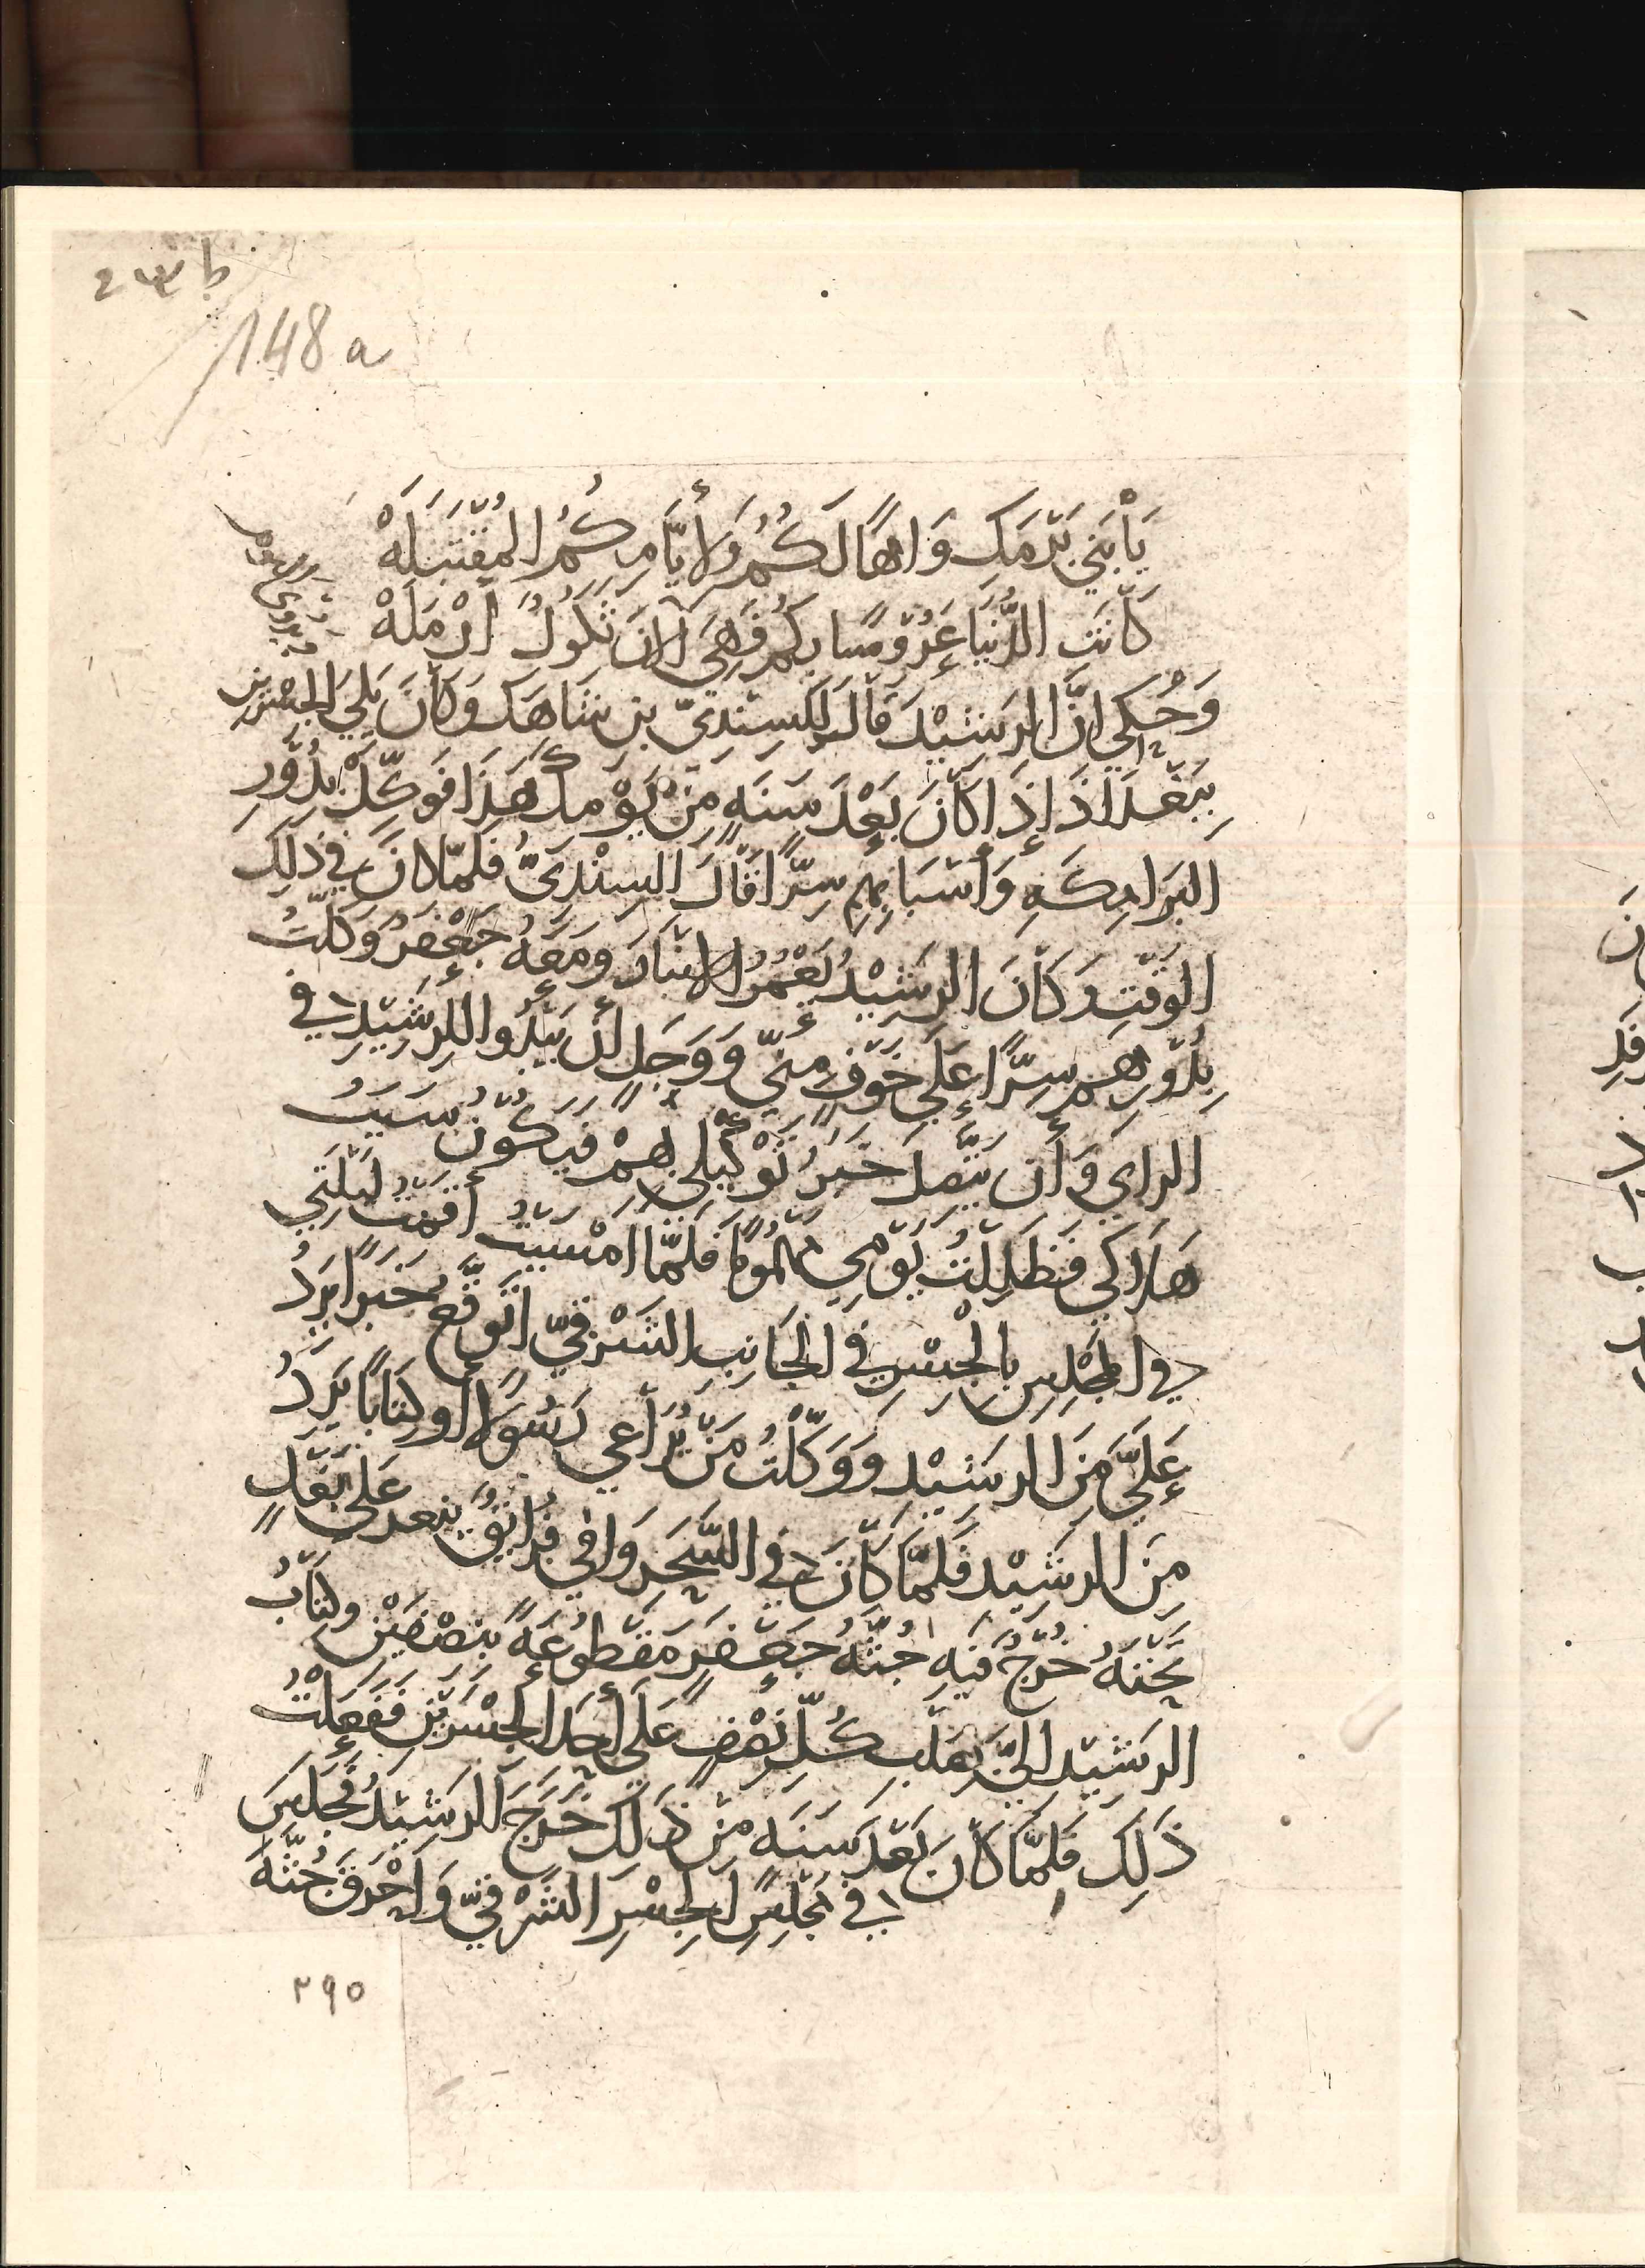 ط ٢٣٤
148 a
يَا بَنِي بَرْمَكٍ وَاهًا لَكُمُ وَلِأَيَّامِكُمُ المُقْتَبَلَهْ
كَانَتِ الدُّنْيَا عَرُوسًا بِكُمُ فَهِيَ الآنَ ثَكُولٌ أَرْمَلَهْ
وَحُكِيَ انَّ الرَشِيْدَ قَالَ لِلسِنْدِيّ بنِ شَاهَك وَكَانَ يَلِيَ الجِسْرَيْنِ
بِبَغْدَاذَ إِذَا كَانَ بَعْدَ سَنَهٍ مِنْ يَوْمِكَ هَذَا فَوَكِّلْ بِدُوْرِ
البَرَامِكَهِ وَأَسْبَابِهِم سِرًّا قَالَ السِنْدِيُّ فَلَمّا كَانَ في ذَلِكَ
الوَقْتِ وَكَانَ الرَشِيْدُ بِعُمْرِ الانْبَارِ وَمَعَهُ جَعْفَرُ وَكَّلْتُ
بِدُوْرِهِمْ سِرًّا عَلَى خَوْفٍ مِنّي وَوَجَلٍ لأن يَبْدُوا للرَشِيْدِ في
الراي وَأن يَتَّصِلَ خَبَرُ تَوْكِيْلِي بِهِمْ فَيَكُوْنُ سَبَبَ
هَلَاكي فَظَلِلْتُ يَوْمِي مَهْمُومًا فَلَمَّا امْسَيْتُ أقَمْتُ لَيْلَتِي
في المَجْلِسِ بِالْجِسْرِ في الجَانِبِ الشَرْقِيِّ اتَوَقَّعُ خَبَرًا يَرِدُ
عَلَيَّ مِنَ الرَشِيْدِ وَوَكَّلْتُ مَنْ يُرَاعِي رَسُوْلًا أو كِتَابًا يَرِدُ
مِنَ الرَشِيْدِ فَلَمَّا كَانَ في السَّحَرِ وَافى فُرَانِقٌ عَلى بَغْلٍ
تَحْتَهُ خُرْجٌ فِيْهِ جُثَّهُ جَعْفَرٍ مَقْطُوعَهً بنِصْفَيْنِ وكِتَابُ
الرَشِيْدِ الَيَّ بِصَلْبِ كُلِّ نِصْفٍ عَلَى أحَدِ الجِسْرَيْنِ فَفَعَلْتُ
ذَلِكَ فَلَمّا كَانَ بَعْدَ سَنَهٍ مِنْ ذَلِكَ خَرَجَ الرَشِيْدُ فَجَلَسَ
في مَجْلِسِ الجِسْرِ الشَرْقِيِّ وَاحْرَقَ جُثَّهَ
٢٩٥